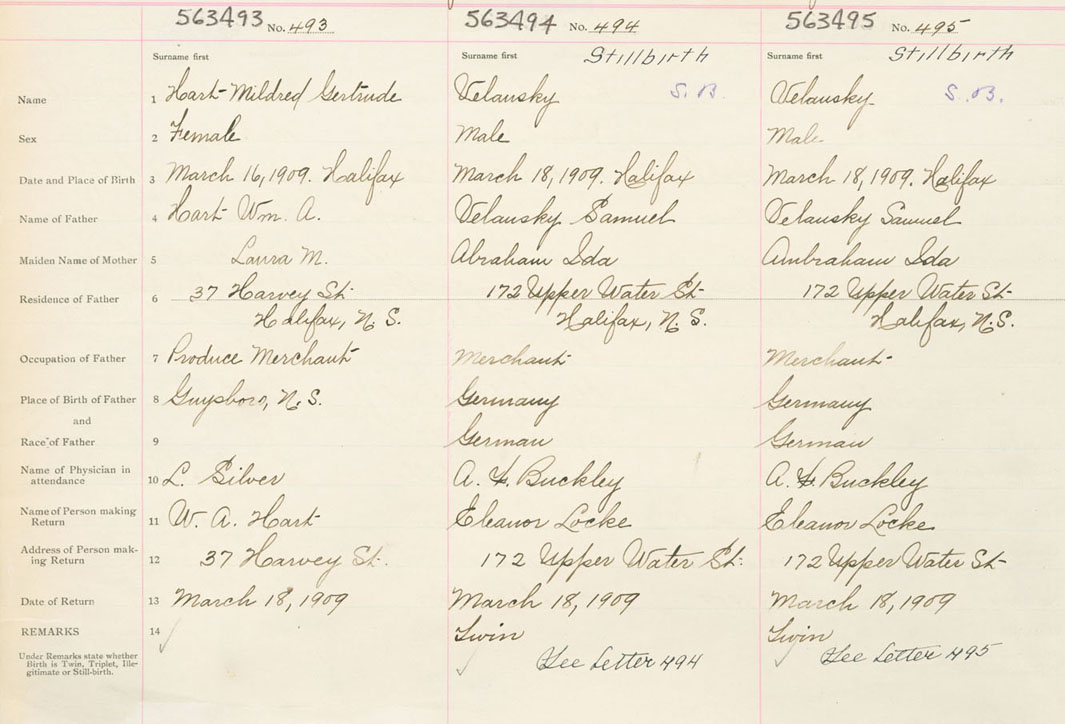 563493 No. 493 563494 No. 494 563495 No. 495
Surname first Surname first Stillbirth Surname first Stillbirth
Name 1 Hart Mildred Gertrude Velansky S.B. Velansky S.B.
Sex 2 Female Male Male
Date and Place of Birth 3 March 16, 1909. Halifax March 18, 1909. Halifax March 18, 1909. Halifax
Name of Father 4 Hart Wm. A. Velansky Samuel Velansky Samuel
Maiden Name of Mother 5 Laura M. Abraham Ida Ambraham Ida
Residence of Father 6 37 Harvey St. 172 Upper Water St. 172 Upper Water St.
Halifax, N.S. Halifax, N.S. Halifax, N.S.
Occupation of Father 7 Produce Merchant Merchant Merchant
Place of Birth of Father 8 Guysboro, N.S. Germany Germany
and
Race of Father 9 German German
Name of Physician in
attendance 10 L. Silver A. Buckley A. Buckley
Name of Person making
Return 11 W. A. Hart Eleanor Locke Eleanor Locke
Address of Person mak-
ing Return 12 37 Harvey St. 172 Upper Water St. 172 Upper Water St.
Date of Return 13 March 18, 1909 March 18, 1909 March 18, 1909
REMARKS 14 Twin Twin
Under Remarks state whether
Birth is Twin, Triplet, Ille-
gitimate or Still-birth.
See Letter 494 See Letter 495